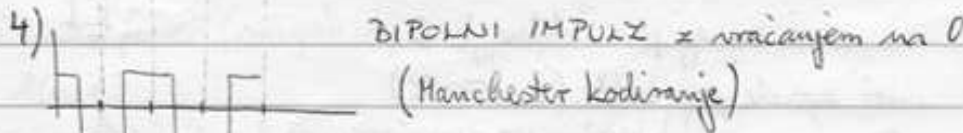 4) BIPOLNI IMPULZ z vračanjem na 0
(Manchester kodiranje)